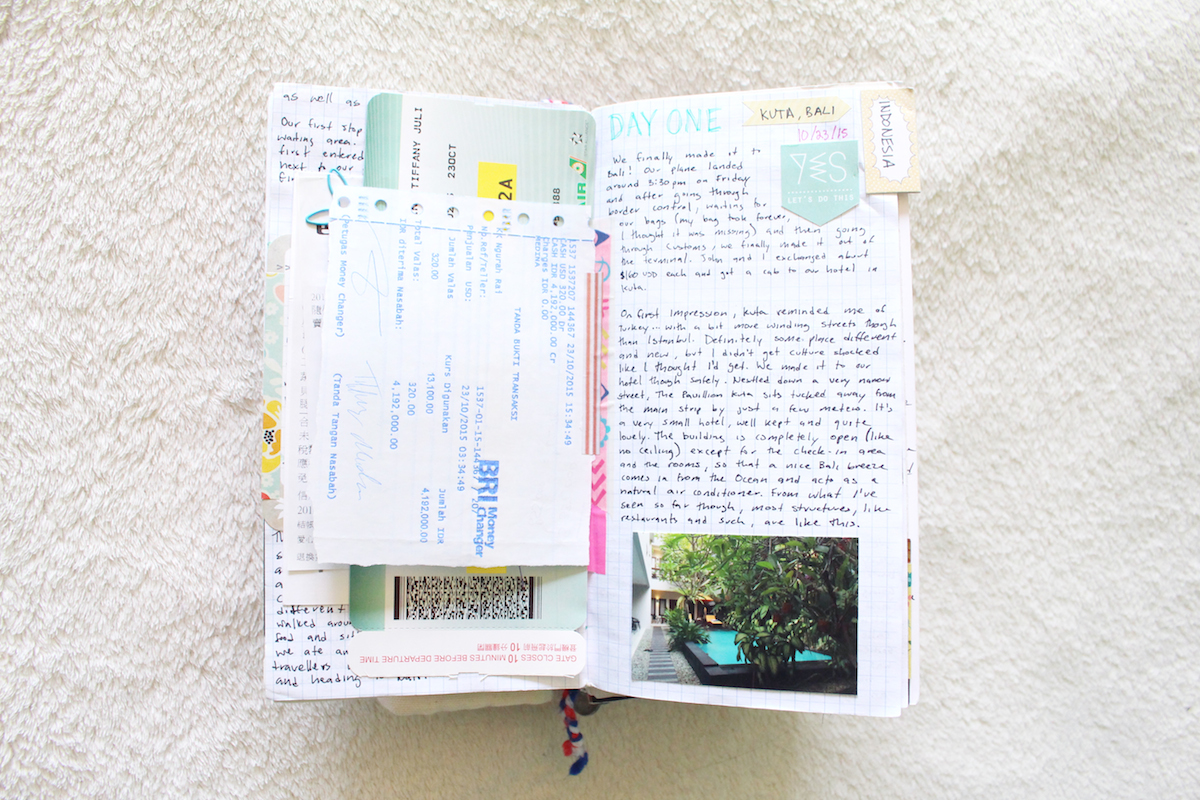 as well as
Our first stop
waiting area.
first entered
next to our
TIFFANY JULI
23OCT
2A
1537 1537207 144367 23/10/2015 15:34:49
CASH USD 320.00 Dr
CASH IDR 4,192,000.00 Cr
Charges IDR 0.00
MEDINA
TANDA BUKTI TRANSAKSI
Ngurah Rai
No.Ref/Teller:
1537-01-15-144367 / 207
Penjualan USD:
23/10/2015 03:34:49
Jumlah Valas
Kurs Digunakan
Jumlah IDR
320.00
13,100.00
4,192,000.00
Total Valas:
320.00
IDR diterima Nasabah:
4,192,000.00
(Petugas Money Changer)
(Tanda Tangan Nasabah)
BRI Money
Changer
GATE CLOSES 10 MINUTES BEFORE DEPARTURE TIME
登機門於起飛前10分鐘關閉
different
walked around
food and
we ate an
travellers
and heading to
DAY ONE
KUTA, BALI
10/23/15
INDONESIA
YES
LET'S DO THIS
We finally made it to
Bali! Our plane landed
around 3:30pm on Friday
and after going through
border control, waiting for
our bags (my bag took forever,
I thought it was missing) and then going
through customs, we finally made it out of
the terminal. John and I exchanged about
$160 USD each and got a cab to our hotel in
Kuta.
On first impression, Kuta reminded me of
Turkey... with a bit more winding streets though
than Istanbul. Definitely some place different
and new, but I didn't get culture shocked
like I thought I'd get. We made it to our
hotel though safely. Nestled down a very narrow
street, The Pavillion Kuta sits tucked away from
the main strip by just a few meters. It's
a very small hotel, well kept and quite
lovely. The building is completely open (like
no ceiling) except for the check-in area
and the rooms, so that a nice Bali breeze
comes in from the Ocean and acts as a
natural air conditioner. From what I've
seen so far though, most structures, like
restaurants and such, are like this.